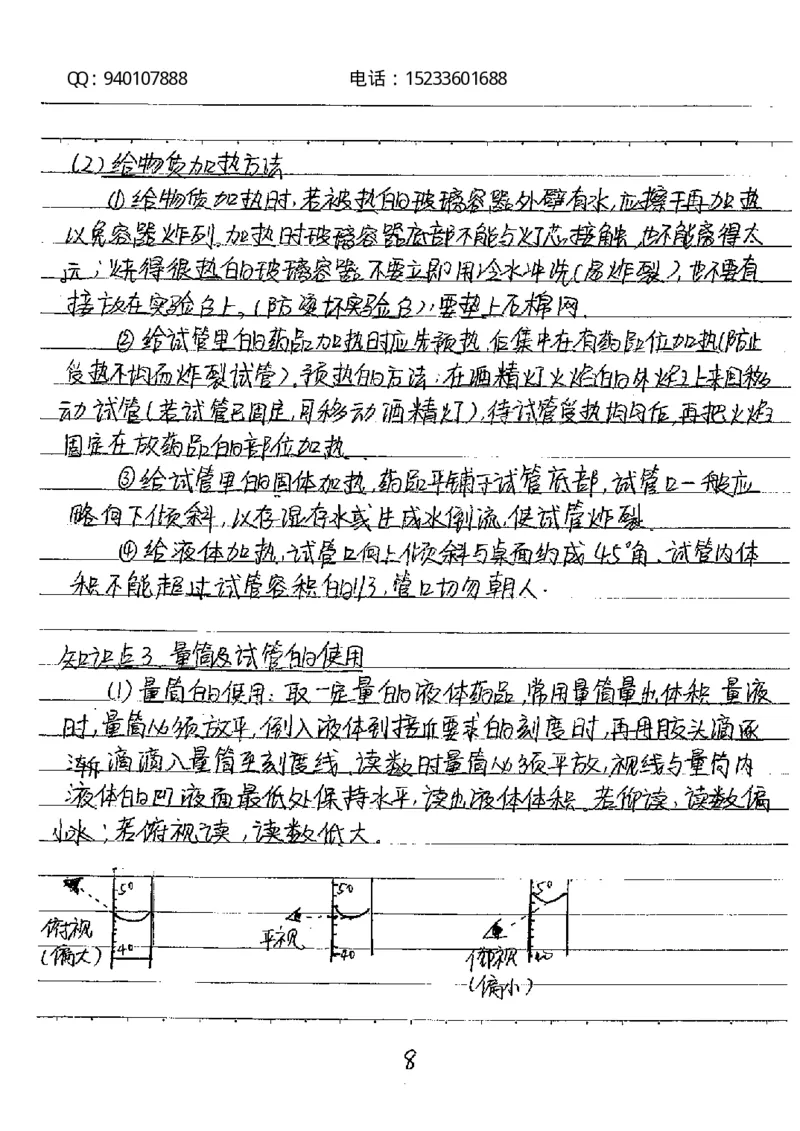 QQ：940107888 电话：15233601688
(2)给物质加热方法
①给物质加热时,若被热的玻璃容器外壁有水,应擦干再加热
以免容器炸列.加热时玻璃容器底部不能与灯芯接触,也不能离得太
远；烧得很热的玻璃容器,不要立即用冷水冲洗(易炸裂),也不要直
接放在实验台上,(防烫坏实验台);要垫上石棉网.
②给试管里的药品加热时应先预热,后集中在有药品位加热(防止
受热不均而炸裂试管).预热的方法:在酒精灯火焰的外焰上来回移
动试管(若试管已固定,可移动酒精灯),待试管受热均匀后,再把火焰
固定在放药品的部位加热.
③给试管里的固体加热,药品平铺于试管底部,试管口一般应
略向下倾斜,以存湿存水或生成水倒流,使试管炸裂.
④给液体加热,试管口向上倾斜与桌面约成45°角.试管内体
积不能超过试管容积的1/3,管口切勿朝人.
知识点3 量筒及试管的使用
(1)量筒的使用:取一定量的液体药品,常用量筒量出体积.量液
时,量筒必须放平,倒入液体到接近要求的刻度时,再用胶头滴逐
渐滴滴入量筒至刻度线.读数时量筒必须平放,视线与量筒内
液体的凹液面最低处保持水平,读出液体体积.若仰读,读数偏
小;若俯视读,读数低大.
50 50 50
俯视 平视 仰视
(偏大) 40 40 40
(偏小)
8